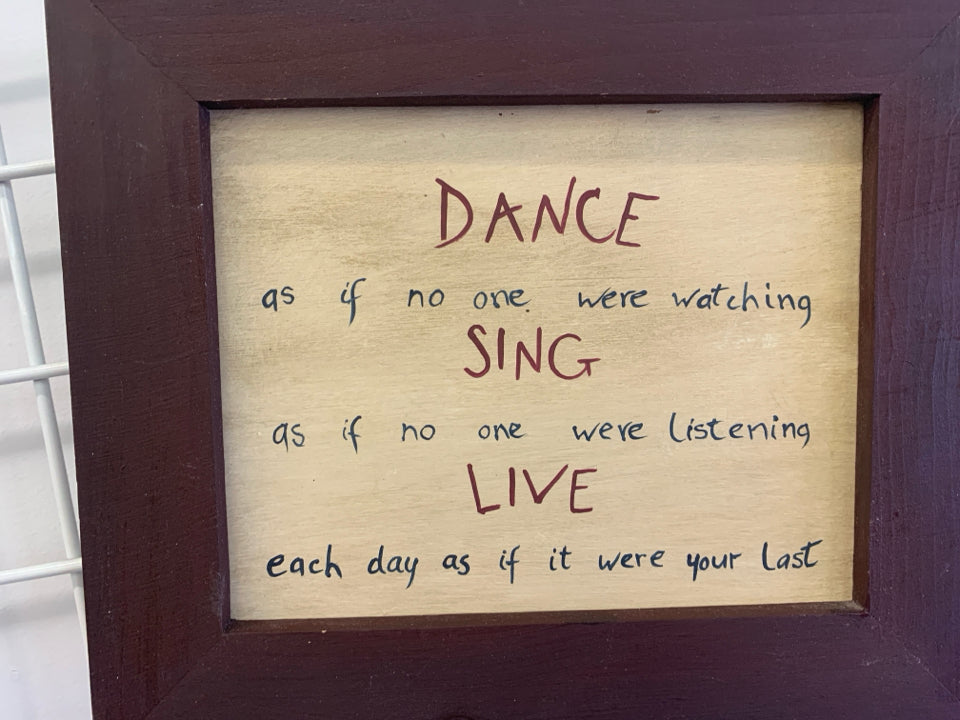 DANCE
as if no one were watching
SING
as if no one were listening
LIVE
each day as if it were your last